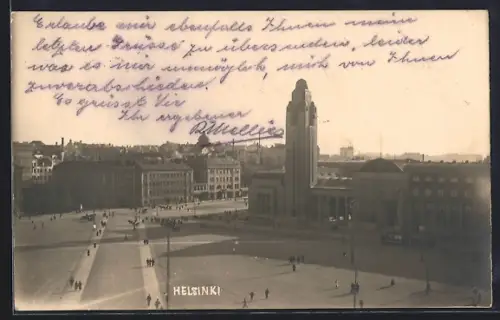 Erlaube mir ebenfalls Ihnen mein
letzten Grüsse zu übersenden, leider
was es mir unmöglich, mich von Ihnen
zuverabschieden.
Es grüsst Sie
Ihr ergebener
HELSINKI